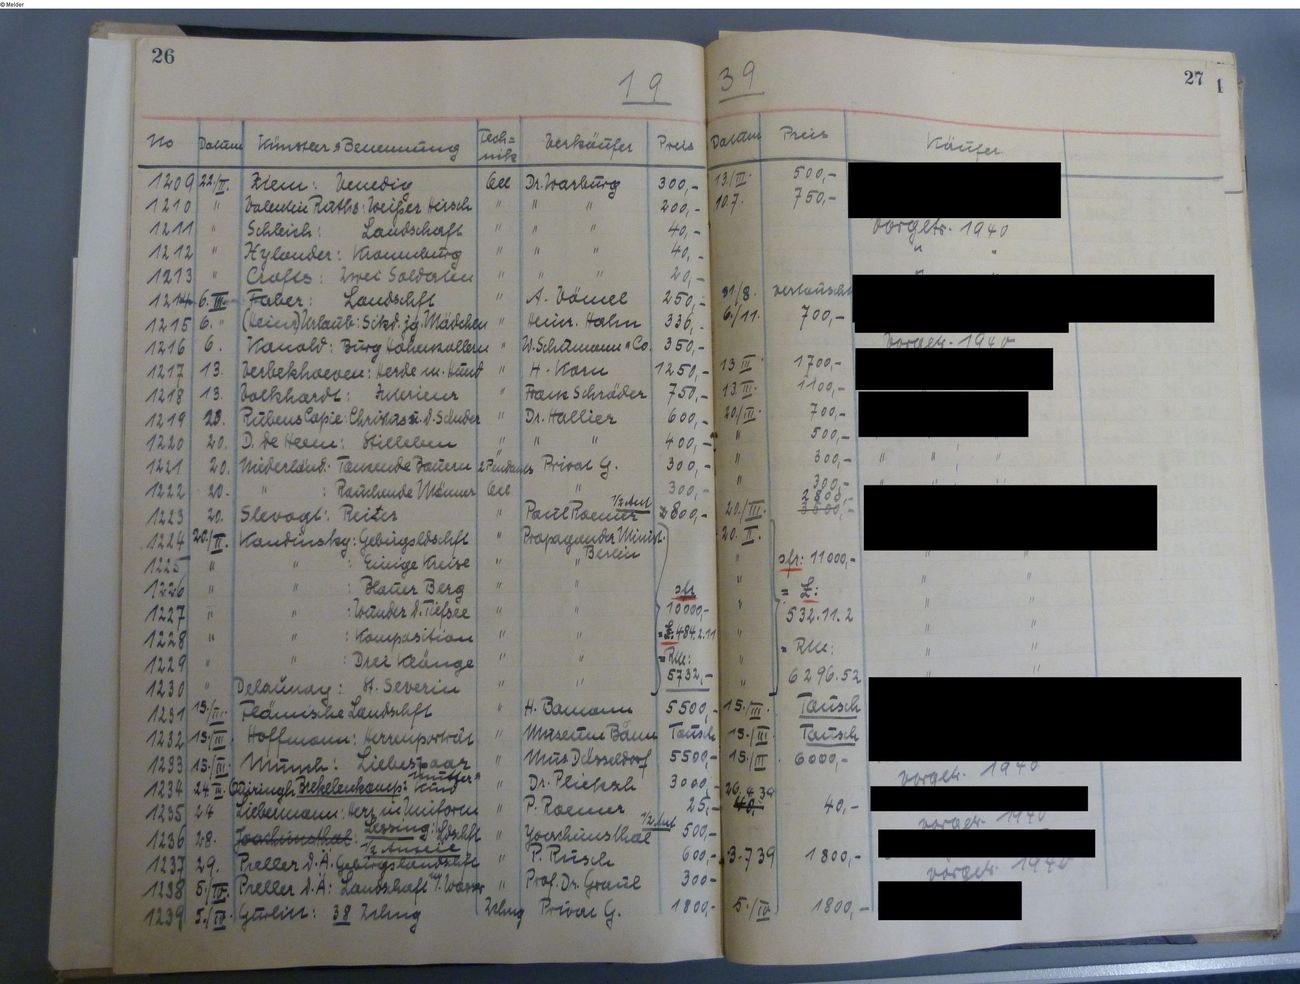 © Melder
26 19 39 27 1
No Datum Künstler & Benennung Technik Verkäufer Preis Datum Preis Käufer
1209 22/II. Ziem: Venedig Oel Dr. Warburg 300,- 13/II. 500,-
1210 " Valentin Ruths: Weißer Hirsch " " " 200,- 10.7. 750,-
1211 " Schleich: Landschaft " " " 40,- vorgetr. 1940
1212 " Hylander: Kronenburg " " " 40,- " "
1213 " Crofts: Zwei Soldaten " " " 20,-
1214 6. III. Faber: Landschft " A. Vömel 250,- 31/8. vertauscht
1215 6. " (Heinr) Urlaub: Sikd. jg. Mädchen " Heinr. Hahn 336,- 6/11. 700,-
1216 6. Kanold: Burg Hohenzollern " W. Schumann & Co. 350,- vorgetr. 1940
1217 13. Verbekhoeven: Herde m. Hund " H. Korn 1250,- 13 III. 1700,-
1218 13. Volkhardt: Interieur " Franz Schröder 750,- 13. III. 1100,-
1219 23. Rubens Copie: Christus u. d. Schuder " Dr. Hallier 600,- 20/III. 700,-
1220 20. D. de Heem: Stilleben " " " 400,- " 500,-
1221 20. Niederländ. Tanzende Bauern 2 Pendants Privat G. 300,- " 300,- " " " "
1222 20. " : Rauchende Männer Oel " 300,- " 300,-
1223 20. Slevogt: Reiter " Paul Roemer 1/2 Ant 2800,- 20./III. 2800,- 3600,-
1224 20./II. Kandinsky: Gebirgsldschft " Propaganda Minist. Berlin 20. II.
1225 " " : Einige Kreise " " " sfr: 11000,- " "
1226 " " : Blauer Berg " " sfr " = £: " "
1227 " " : Wunder d. Tiefsee " " 10000,- " 532.11.2 " "
1228 " " : Komposition " " = £: 484.2.11 " " "
1229 " " : Drei Klänge " " = RM: " = RM: " "
1230 " Delaunay: St. Severin " " 5732,- " 6296.52 " "
1231 15./III. Flämische Landschft " H. Bamann 5500,- 15./III. Tausch
1232 15./III. Hoffmann: Herrenporträt " Museum Tausch 15./III. Tausch
1233 15./III. Munch: Liebespaar " Mus Düsseldorf 5500,- 15./III 6000,-
1234 24 III. Quiringh Brekelenkamp: Mutter u Kind " Dr. Plietzsch 3000,- vorgetr. 1940
1235 24 Liebermann: Herr in Uniform " P. Roemer 25,- 26.4.39 40,-
1236 28. Joachimsthal: Lessing: Ldschft " Yoachimsthal 1/2 Ant 500,- vorgetr. 1940
1237 29. Preller d. Ä. Gebirgslandschft " P. Rusch 600,- 3.7.39 1800,-
1238 5./IV. Preller d. Ä: Landschaft m/. Wasser " Prof. Dr. Graul 300- vorgetr. 1940
1239 5./IV. Gurlitt: 38 Zchng Zchng Privat G. 1800,- 5./IV 1800,-